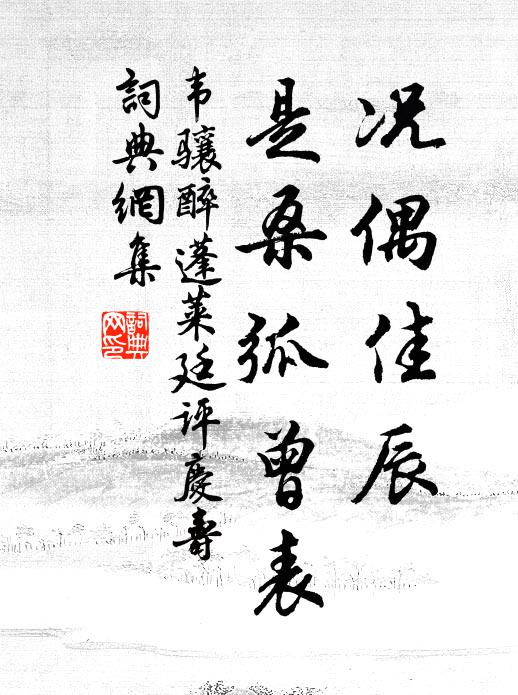 况偶佳辰
是桑弧曾表
韦骧醉蓬莱廷评慶壽
詞典網集
詞典
网印